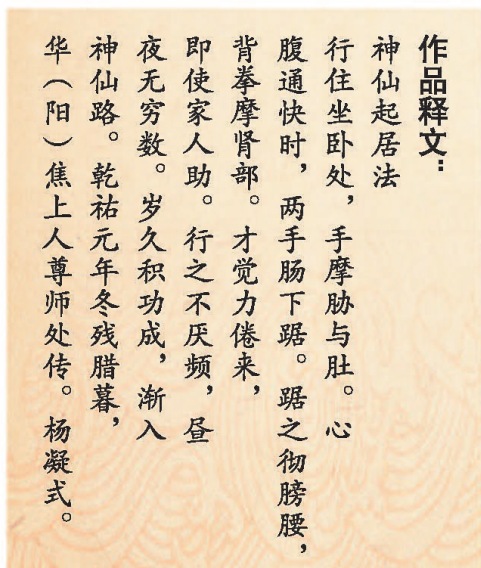 作品释文：
神仙起居法
行住坐卧处，手摩胁与肚。心
腹通快时，两手肠下踞。踞之彻膀腰，
背拳摩肾部。才觉力倦来，
即使家人助。行之不厌频，昼
夜无穷数。岁久积功成，渐入
神仙路。乾祐元年冬残腊暮，
华（阳）焦上人尊师处传。杨凝式。